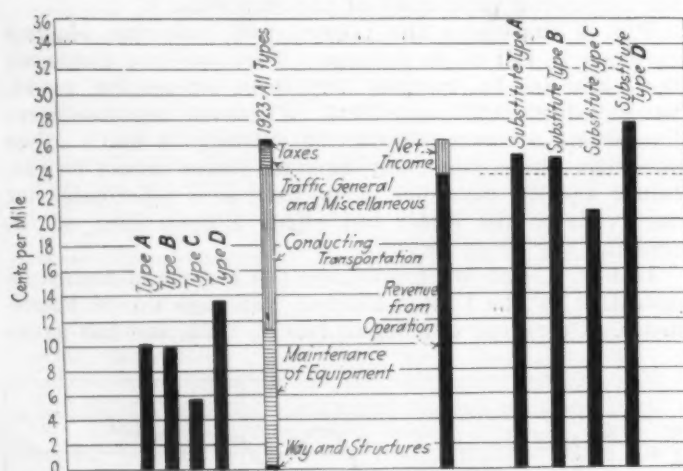 36
34
32
30
28
26
24
22
20
18
16
14
12
10
8
6
4
2
0
Cents per Mile
Type A
Type B
Type C
Type D
1923-All Types
Taxes
Traffic, General
and Miscellaneous
Conducting
Transportation
Maintenance
of Equipment
Way and Structures
Net
Income
Revenue
from
Operation
Substitute Type A
Substitute Type B
Substitute Type C
Substitute
Type D